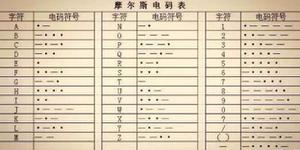 摩尔斯电码表
字符 电码符号 字符 电码符号 字符 电码符号
A •— N —• 1 •————
B —••• O ——— 2 ••———
C —•—• P •——• 3 •••——
D —•• Q ——•— 4 ••••—
E • R •—• 5 •••••
F ••—• S ••• 6 —••••
G ——• T — 7 ——•••
H •••• U ••— 8 ———••
I •• V •••— 9 ————•
J •——— W •—— 0 —————
K —•— X —••— ?
L •—•• Y —•—— /
M —— Z ——•• ()